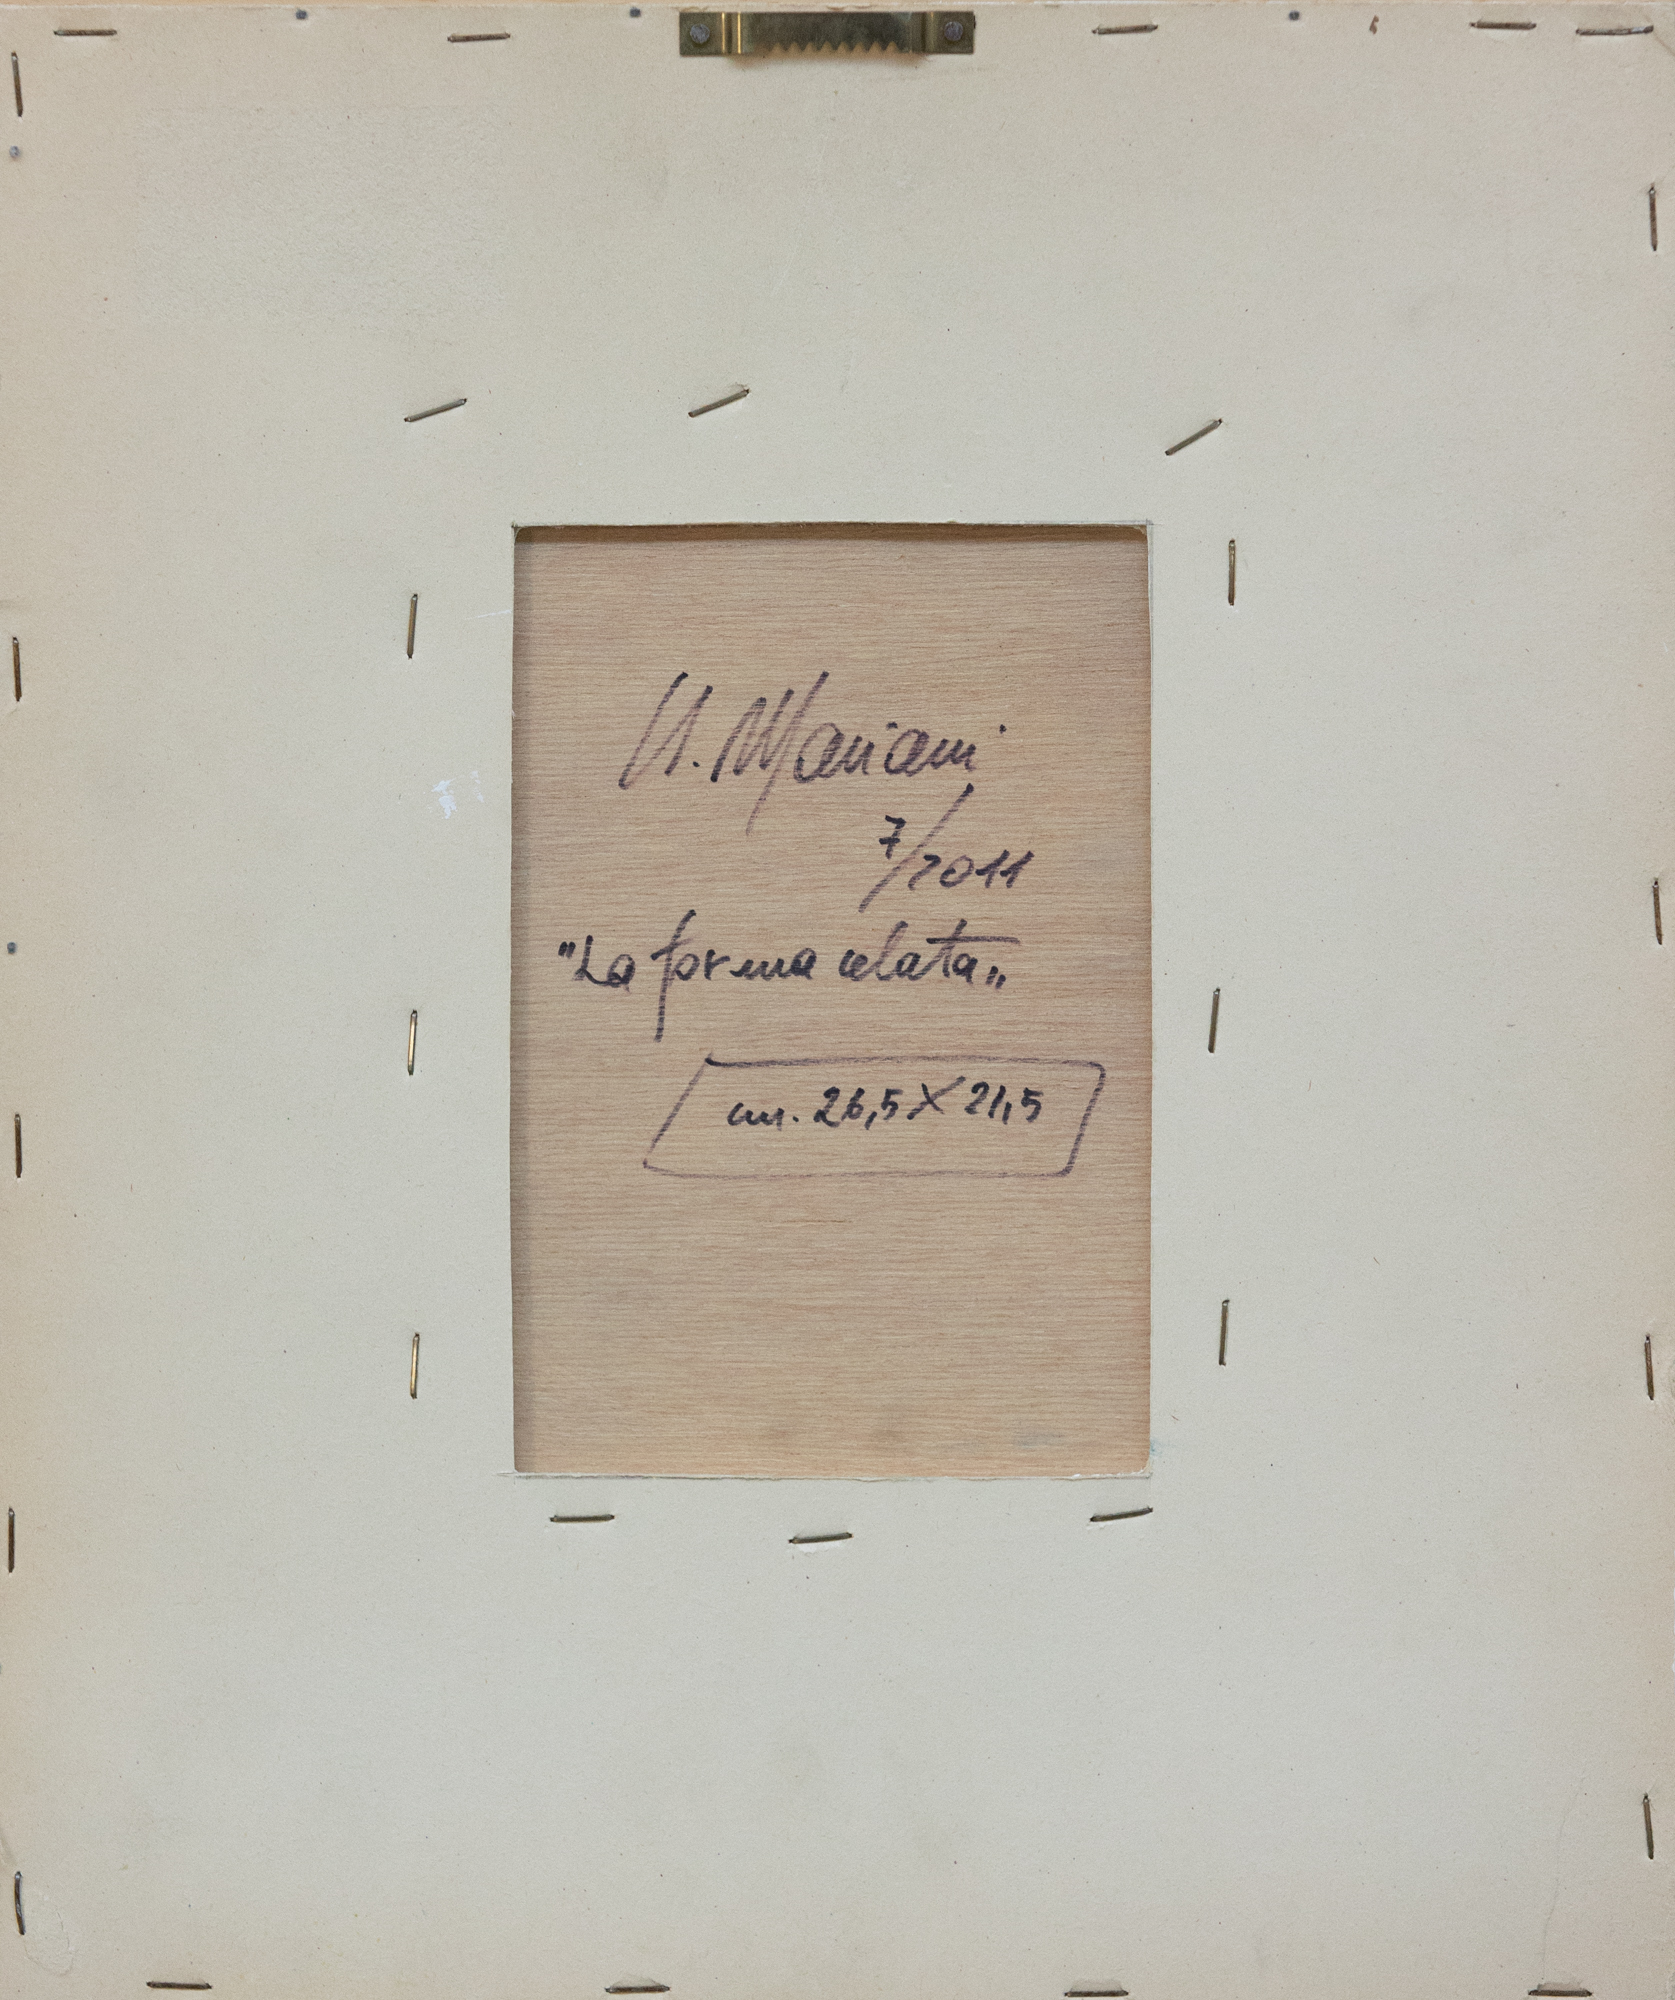 U. Mariani
7/2011
"La forma celata"
cm. 26,5 X 21,5